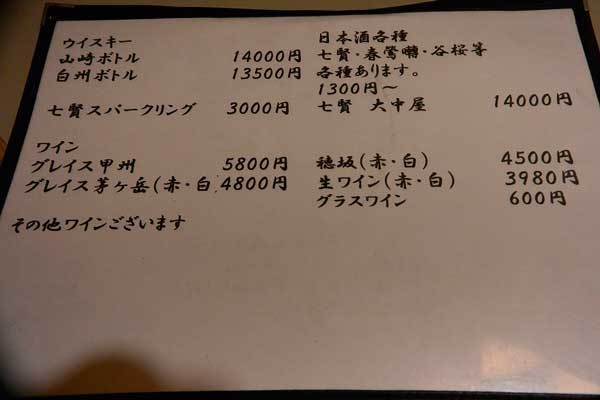 ウイスキー
山崎ボトル 14000円
白州ボトル 13500円
七賢スパークリング 3000円
日本酒各種
七賢・春鶯囀・谷桜等
各種あります。
1300円〜
七賢 大中屋 14000円
ワイン
グレイス甲州 5800円
グレイス茅ヶ岳(赤・白 4800円
穂坂(赤・白) 4500円
生ワイン(赤・白) 3980円
グラスワイン 600円
その他ワインございます